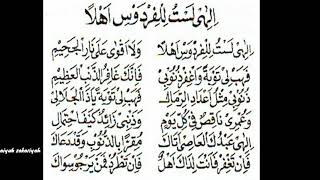 اِلٰهِيْ لَسْتُ لِلْفِرْدَوْسِ اَهْلًا
اِلٰهِيْ لَسْتُ لِلْفِرْدَوْسِ اَهْلًا وَلَا اَقْوٰى عَلٰى نَارِ الْجَحِيْمِ
فَهَبْ لِيْ تَوْبَةً وَاغْفِرْ ذُنُوْبِيْ فَاِنَّكَ غَافِرُ الذَّنْبِ الْعَظِيْمِ
ذُنُوْبِيْ مِثْلُ اَعْدَادِ الرِّمَالِ فَهَبْ لِيْ تَوْبَةً يَاذَا الْجَلَالِ
وَعُمْرِيْ نَاقِصٌ فِيْ كُلِّ يَوْمٍ وَذَنْبِيْ زَائِدٌ كَيْفَ احْتِمَالِ
اِلٰهِيْ عَبْدُكَ الْعَاصِيْ اَتَاكَ مُقِرًّا بِالذُّنُوْبِ وَقَدْ دَعَاكَ
فَاِنْ تَغْفِرْ فَاَنْتَ لِذَاكَ اَهْلٌ فَاِنْ تَطْرُدْ فَمَنْ يَرْجُوْ سِوَاكَ
aiyah zakariyah